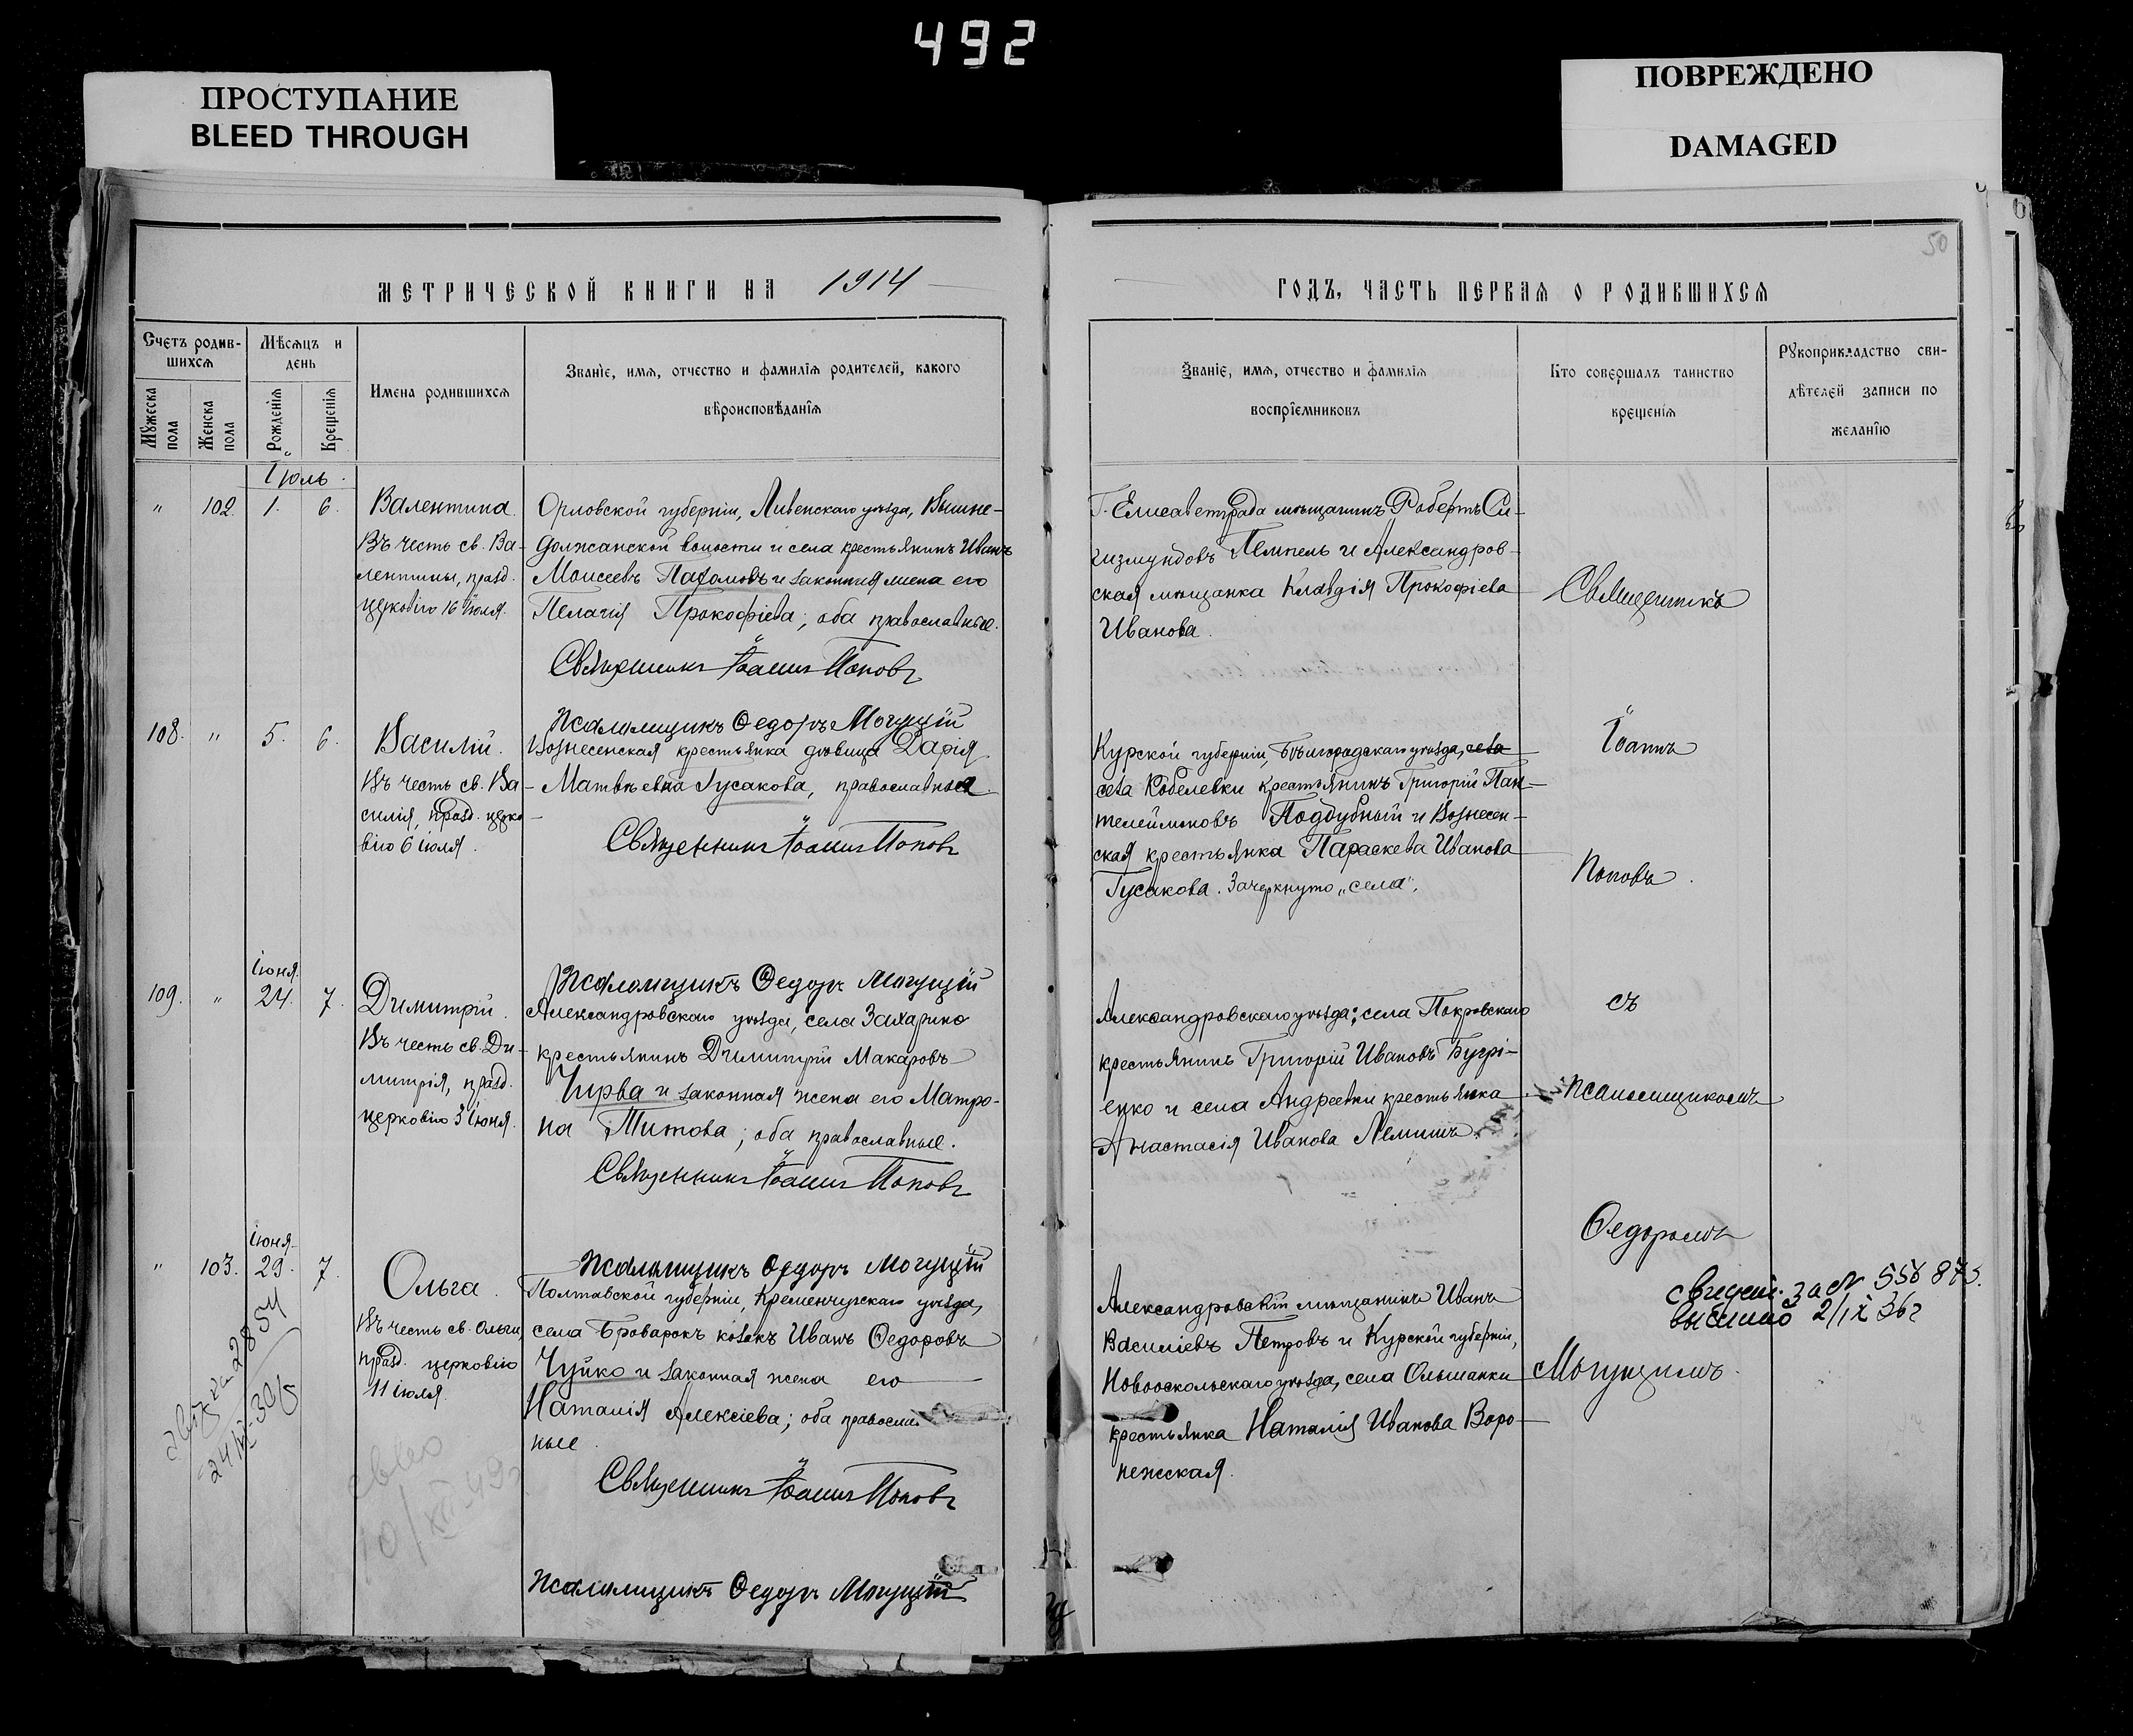 492
ПРОСТУПАНИЕ
BLEED THROUGH
ПОВРЕЖДЕНО
DAMAGED
50
МЕТРИЧЕСКОЙ КНИГИ НА 1914
ГОДЪ, ЧАСТЬ ПЕРВАЯ О РОДИВШИХСЯ
Счетъ родив-
шихся
Мѣсяцъ и
день
Мужеска
пола
Женска
пола
Рожденія
Крещенія
Имена родившихся
Званіе, имя, отчество и фамилія родителей, какого
вѣроисповѣданія
Званіе, имя, отчество и фамилія
воспріемниковъ
Кто совершалъ таинство
крещенія
Рукоприкладство сви-
дѣтелей записи по
желанію
Іюль.
" 102. 1. 6.
Валентина.
Въ честь св. Ва-
лентины, празд.
церковію 16 іюля.
Орловской губерніи, Ливенскаго уѣзда, Вышне-
Должанской волости и села крестьянинъ Иванъ
Моисеевъ Пахомовъ и законная жена его
Пелагія Прокофіева; оба православные.
Священникъ Іоаннъ Поповъ
Псаломщикъ Ѳедоръ Могущій
Г. Елисаветграда мѣщанинъ Робертъ Си-
гизмундовъ Темпель и Александров-
ская мѣщанка Клавдія Прокофіева
Иванова.
108. " 5. 6.
Василій.
Въ честь св. Ва-
силія, празд. церко-
вію 6 іюля.
Вознесенская крестьянка дѣвица Дарія
Матвѣевна Гусакова, православная.
Священникъ Іоаннъ Поповъ
Псаломщикъ Ѳедоръ Могущій
Курской губерніи, Бѣлгородскаго уѣзда, села
села Кобелевки крестьянинъ Григорій Пан-
телеймоновъ Поддубный и Вознесен-
ская крестьянка Параскева Иванова
Гусакова. Зачеркнуто „села".
109. " Іюня. 24. 7.
Димитрій.
Въ честь св. Ди-
митрія, празд.
церковію 3 іюня.
Александровскаго уѣзда, села Захарино
крестьянинъ Димитрій Макаровъ
Чирва и законная жена его Матро-
на Титова; оба православные.
Священникъ Іоаннъ Поповъ
Псаломщикъ Ѳедоръ Могущій
Александровскаго уѣзда: села Покровскаго
крестьянинъ Григорій Ивановъ Бугрі-
енко и села Андреевки крестьянка
Анастасія Иванова Лемишъ.
" 103. Іюня 29. 7.
Ольга.
Въ честь св. Ольги,
празд. церковію
11 іюля.
Полтавской губерніи, Кременчугскаго уѣзда,
села Броварокъ козакъ Иванъ Ѳедоровъ
Чуйко и законная жена его
Наталія Алексіева; оба православ
ные.
Священникъ Іоаннъ Поповъ
Псаломщикъ Ѳедоръ Могущій
Александровскій мѣщанинъ Иванъ
Василіевъ Петровъ и Курской губерніи,
Новооскольскаго уѣзда, села Ольшанки
крестьянка Наталія Иванова Воро-
нежская.
Священникъ
Іоаннъ
Поповъ.
съ
псаломщикомъ
Ѳедоромъ
Могущимъ.
2/IX 36г